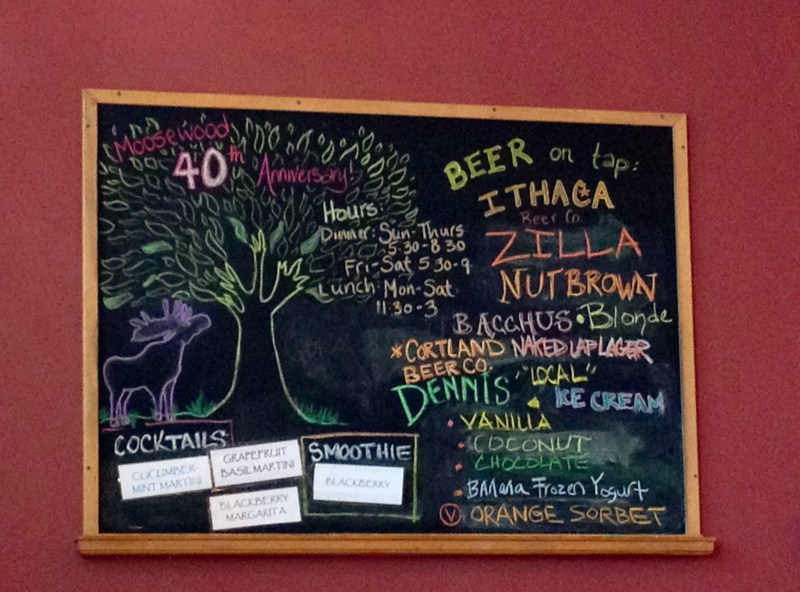 Moosewood
40th Anniversary!
Hours:
Dinner: Sun-Thurs
5:30-8:30
Fri-Sat 5:30-9
Lunch: Mon-Sat
11:30-3
BEER on tap:
ITHACA
Beer Co.
ZILLA
NUTBROWN
BACCHUS • Blonde
*CORTLAND NAKED LAP LAGER
BEER CO.
DENNIS "LOCAL"
ICE CREAM
• VANILLA
• COCONUT
• CHOCOLATE
• BANana Frozen Yogurt
V ORANGE SORBET
COCKTAILS
CUCUMBER
MINT MARTINI
GRAPEFRUIT
BASIL MARTINI
BLACKBERRY
MARGARITA
SMOOTHIE
BLACKBERRY